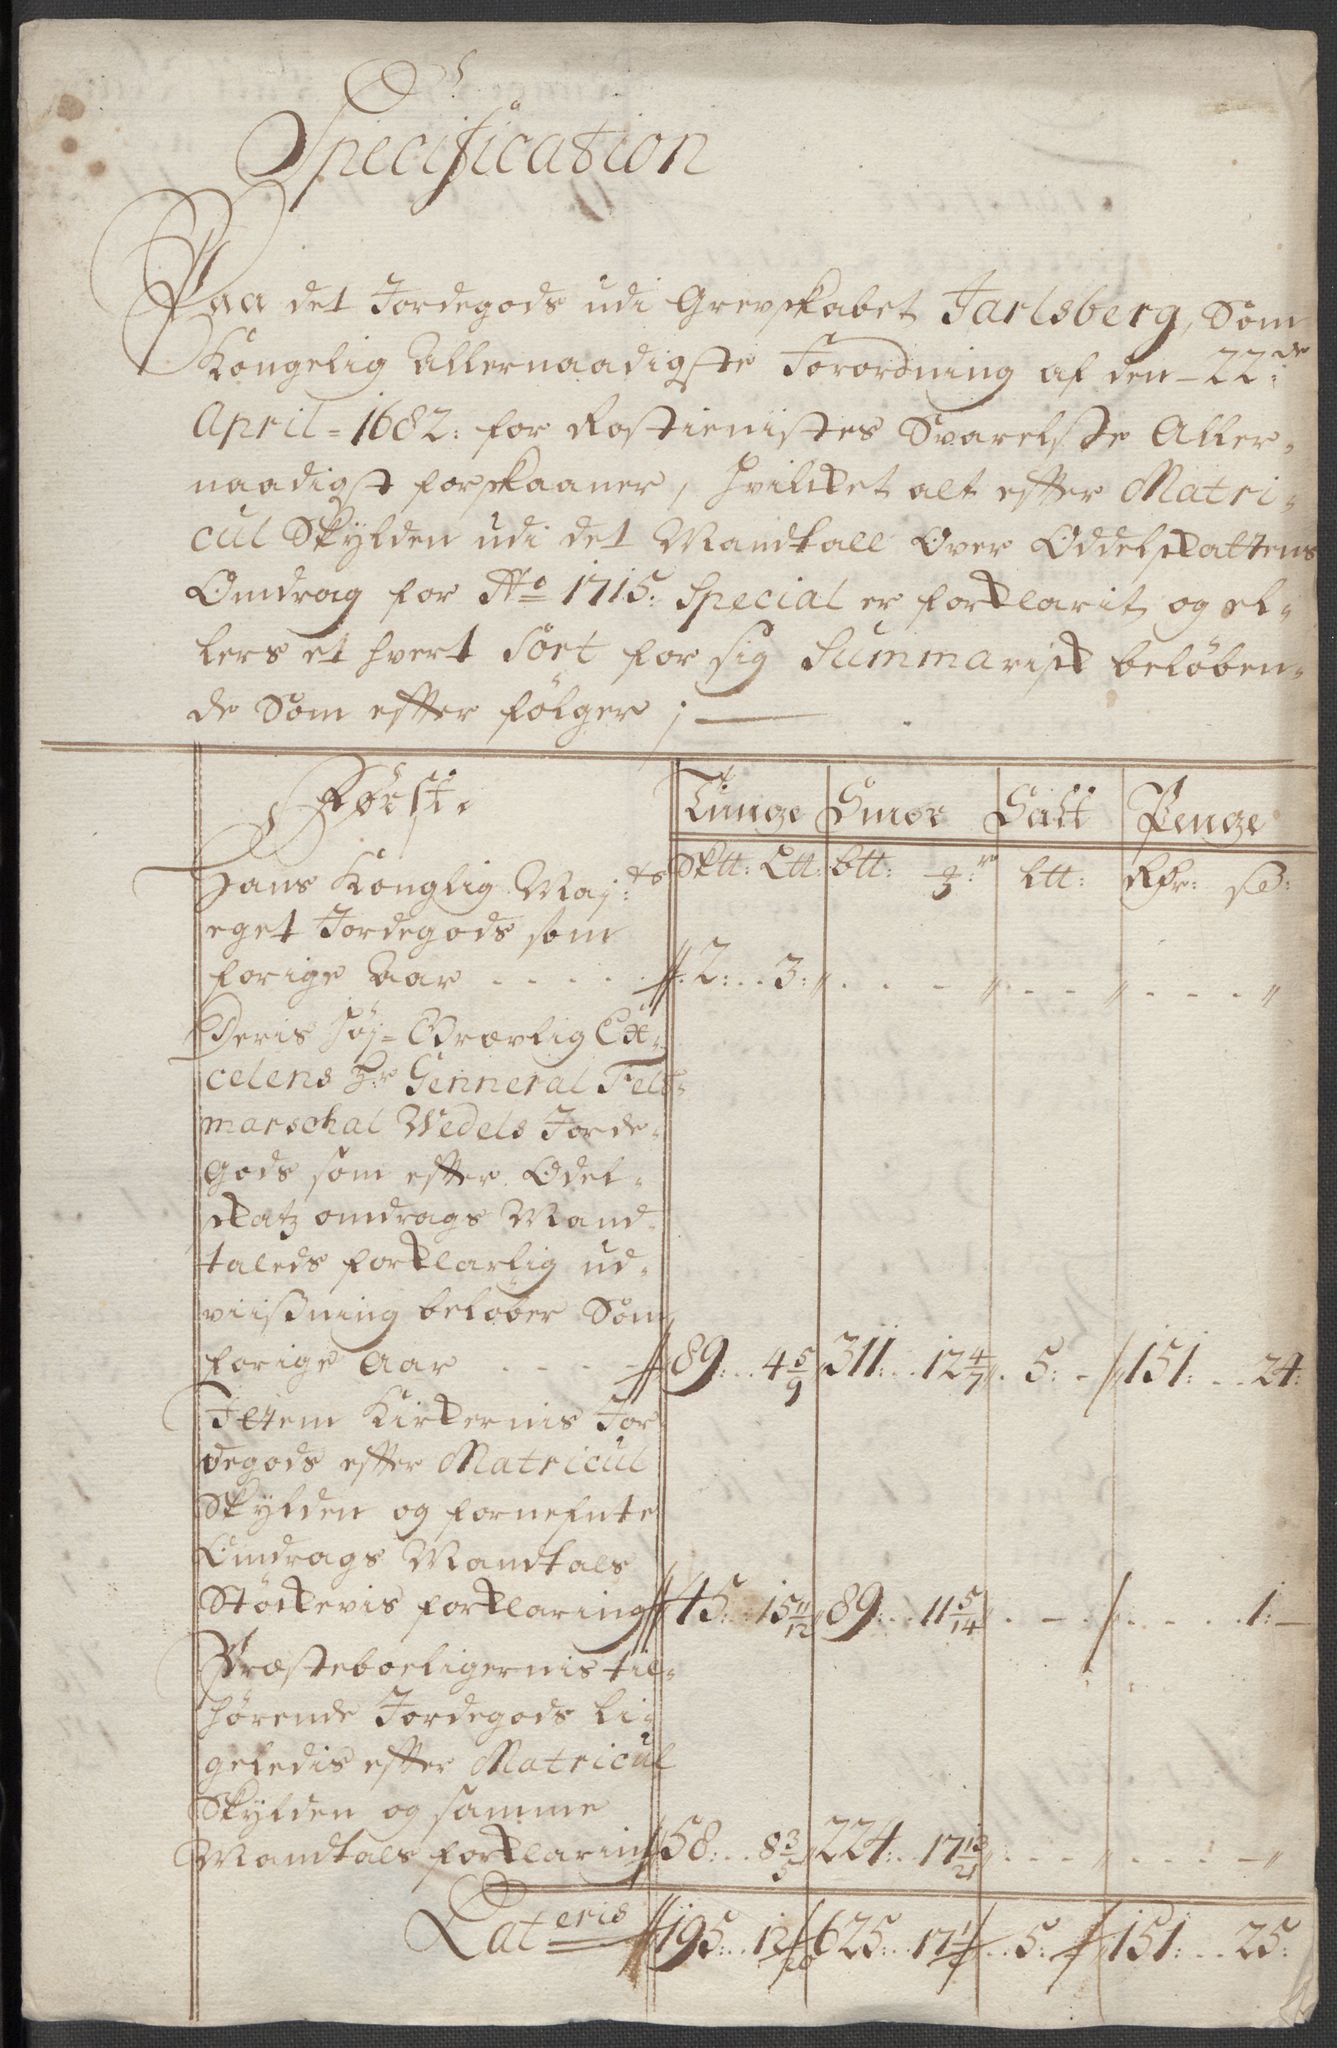 Specification
Paa det Jordegods udi Grevskabet Jarlsberg, Som
Kongelig Allernaadigste Forordning af den 22de
April = 1682: for Rostienistes Svarelste Aller-
naadigst forskaaner, hvilcket alt efter Matri-
cul Skylden udi det Mandtall Over Oddelskattens
Omdrag for Ao 1715: Special er forklarit og el-
lers et hvert Sort for sig Summarisk beløben-
de Som efter følger ;
Først. Tunge Smør Salt Penge
Hans Konglig May:ts Sktt: Ltt: btt: ltt: Rdr: sz:
eget Jordegods som
forige Aar . . . . 2: . . 3:
Deris Høy= Grævlig Ex-
celens Hr Genneral Felt-
marschal Wedels Jorde-
Gods som efter Odel-
skatz omdrags Mand-
taleds forklarlig ud-
viisning beløber Som
forige Aar . . . . 89: . . 4 5/9 311: . . 12 4/7 . 5: - 151: . . 24:
Jttem Kirkernis Jor
degods efter Matricul
Skylden og fornefnte
Omdrags Mandtals
Støckevis forklaring 45: . . 15 11/12 89: . . 11 5/14 . - . . . . 1: -
Præsteboeligernis til-
hørende Jordegods li-
geledis efter Matricul
Skylden og samme
Mandtals forklaring 58: . . 8 3/5 224: . . 17 13/21
Lateris 195: . . 12 625: . . 17 . . 5: 151: . . 25: